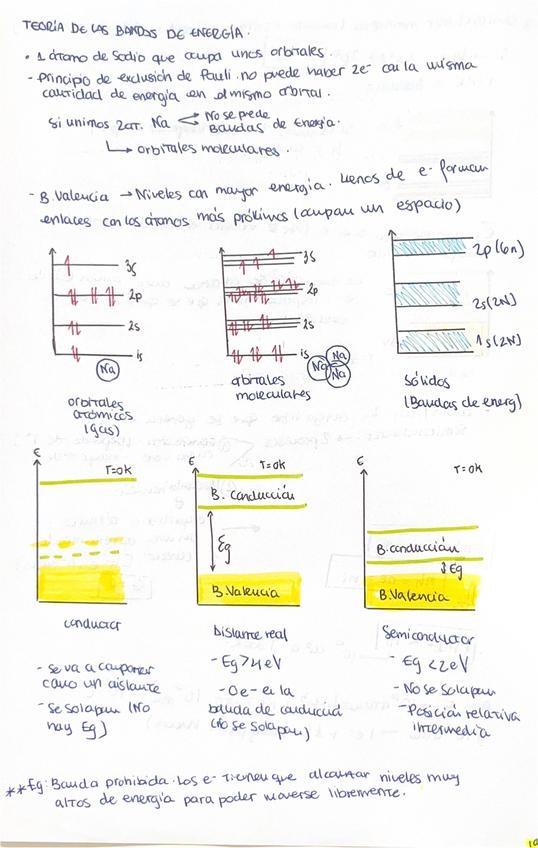 TEORÍA DE LAS BANDAS DE ENERGÍA.
• 1 átomo de sodio que ocupa unos orbitales.
- Principio de exclusión de Pauli. no puede haber 2e- con la misma
cantidad de energía en el mismo orbital.
Si unimos 2at. Na
No se prede
Bandas de Energía.
orbitales moleculares.
- B. Valencia → Niveles con mayor energía. Llenos de e- forman
enlaces con los átomos más próximos (ocupan un espacio)
3s
2p
2s
1s
Na
orbitales
atómicos
(gas)
3s
2p
2s
1s
Na
Na
Na
orbitales
moleculares
2p (6n)
2s (2N)
1s (2N)
Sólidos
(Bandas de energ)
E
T=0K
conductor
- se va a comportar
como un aislante
- Se solapan (No
hay Eg)
E
T=0K
B. conducción
Eg
B. Valencia
Dislante real
- Eg>4eV
- 0e- en la
banda de conducción
(No se solapan)
E
T=0K
B. conducción
Eg
B. Valencia
Semiconductor
- Eg <2eV
- No se solapan
- Posición relativa
intermedia
**Eg: Banda prohibida. Los e- tienen que alcanzar niveles muy
altos de energía para poder moverse libremente.